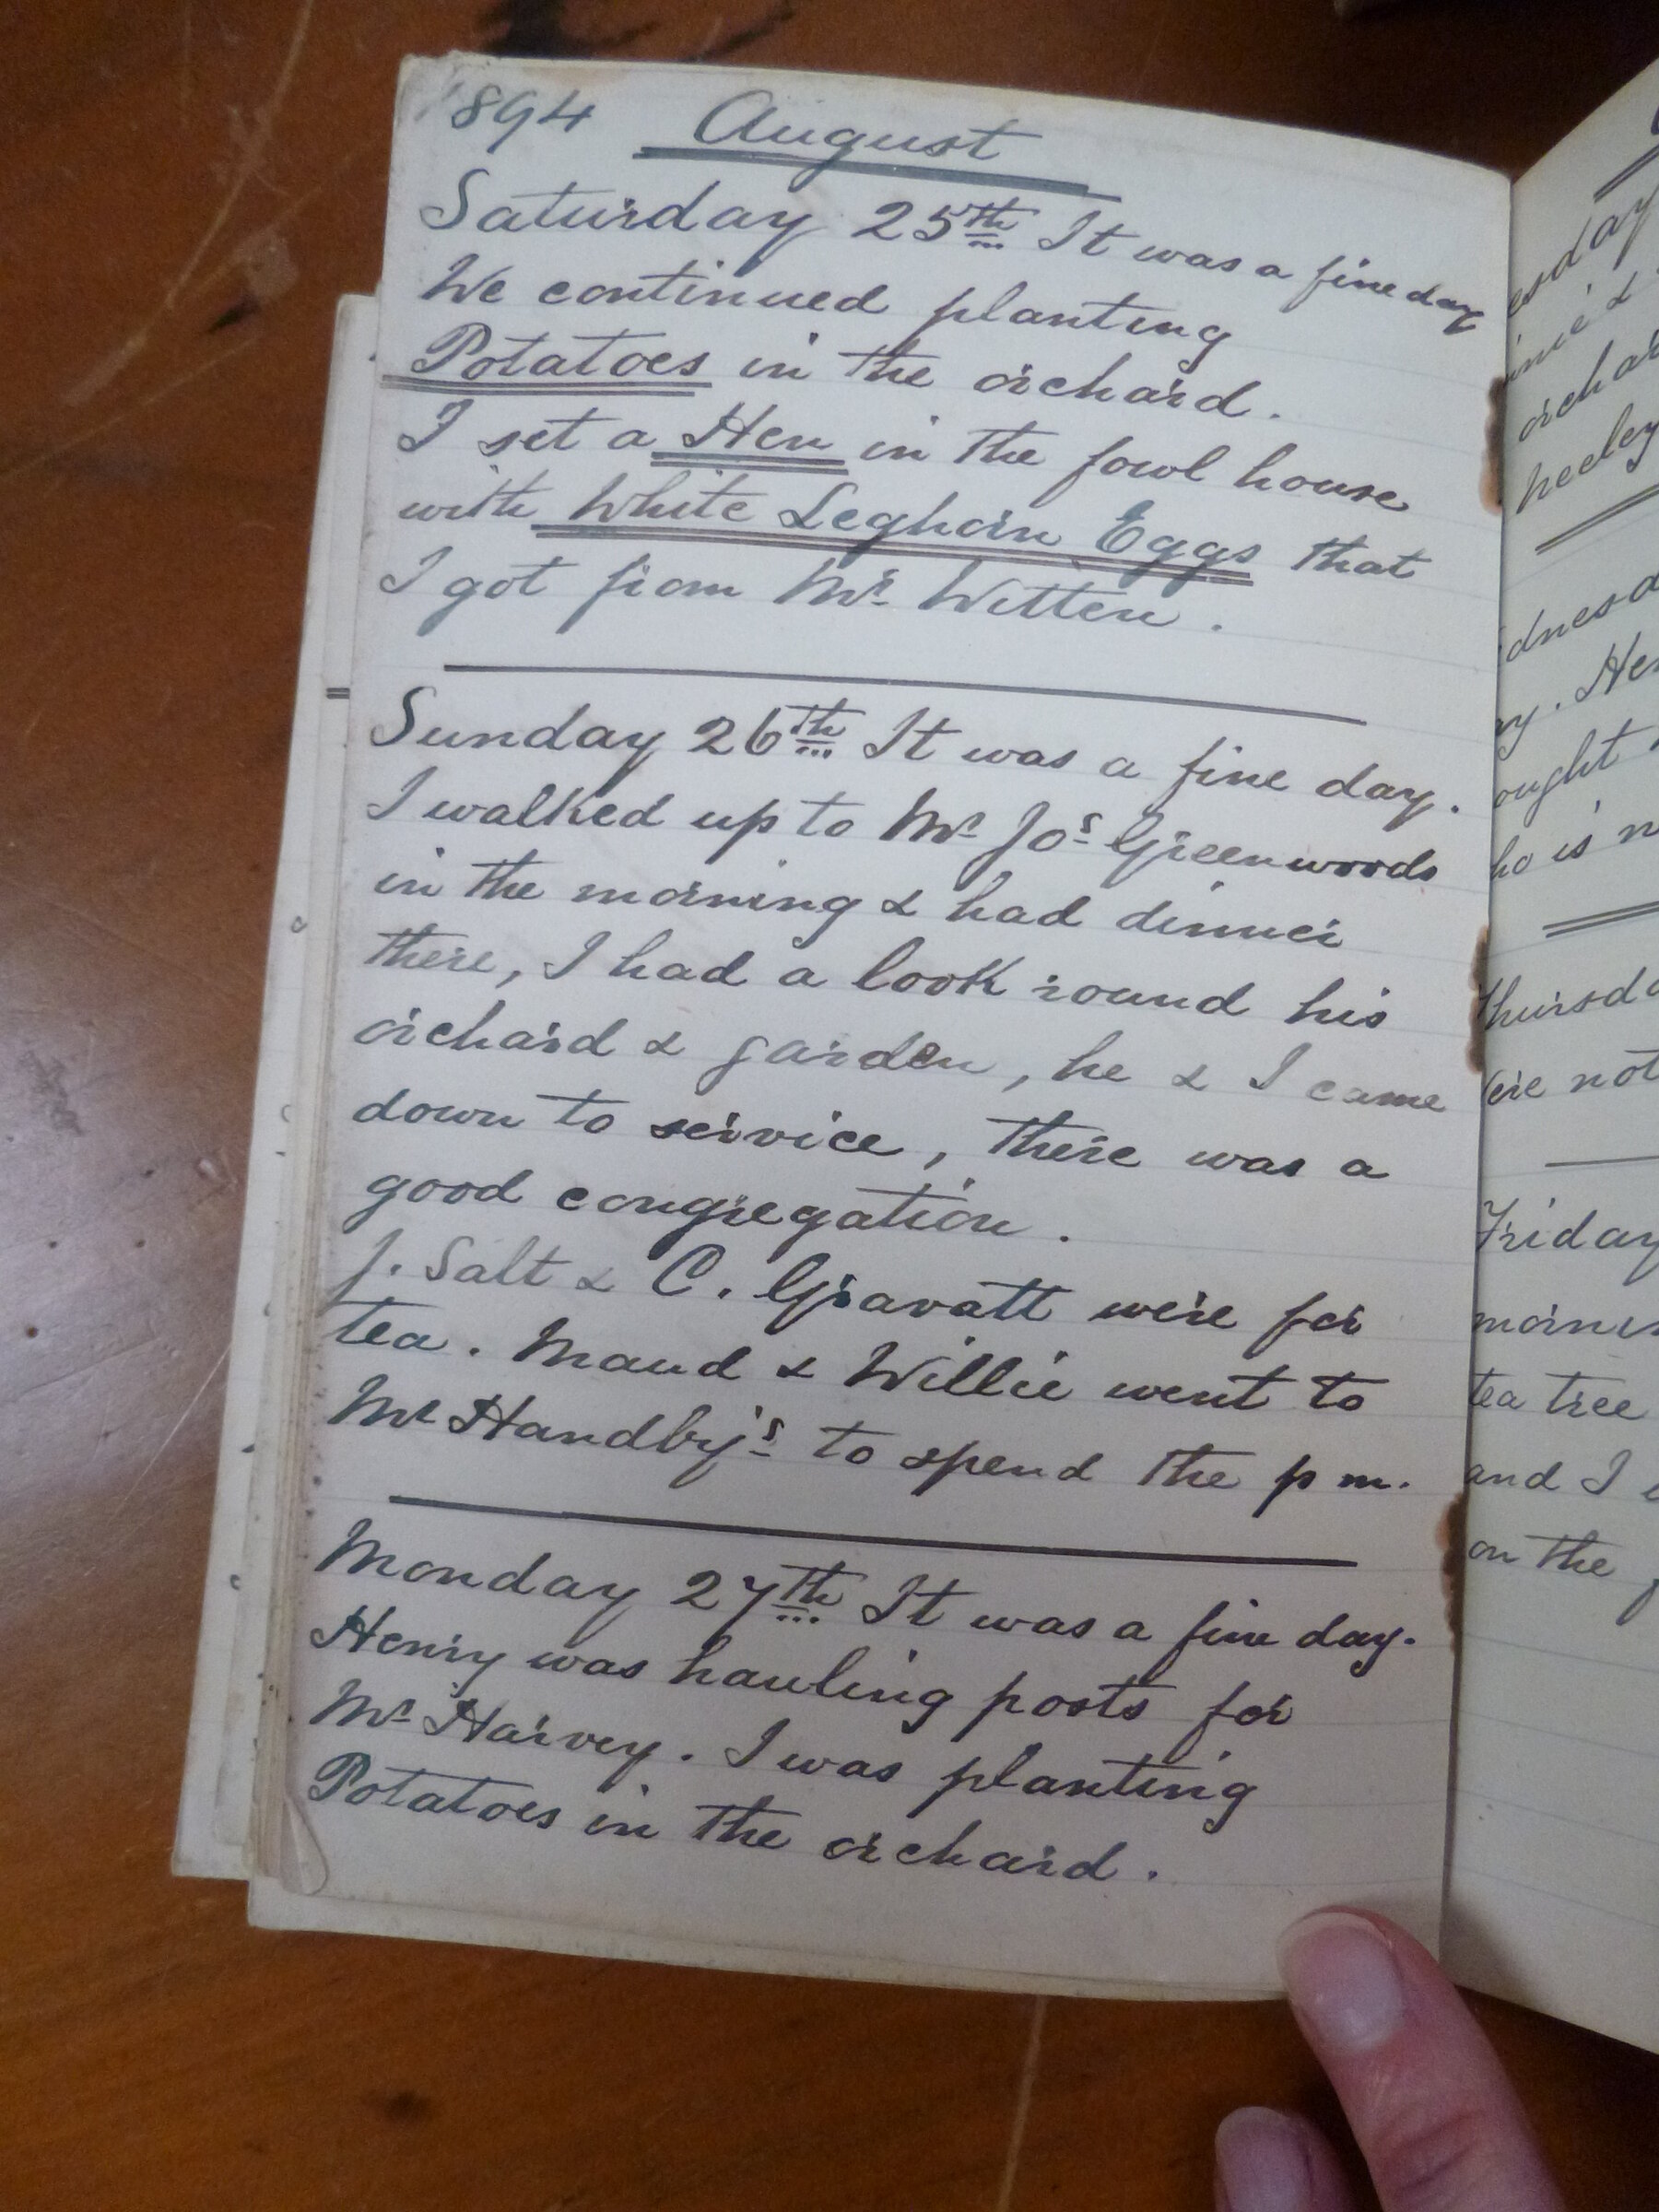 1894 August
Saturday 25th It was a fine day
We continued planting
Potatoes in the orchard.
I set a Hen in the fowl house
with White Leghorn Eggs that
I got from Mr Witten.
Sunday 26th It was a fine day.
I walked up to Mr Jos Greenwoods
in the morning & had dinner
there, I had a look round his
orchard & garden, he & I came
down to service, there was a
good congregation.
J. Salt & C. Gravatt were for
tea. Maud & Willie went to
Mr Handby's to spend the p m.
Monday 27th It was a fine day.
Henry was hauling posts for
Mr Harvey. I was planting
Potatoes in the orchard.
esday
orchar
dnesd
ay. Hen
ought
ho is n
Thursda
ere not
Friday
mornin
tea tree
and I
on the